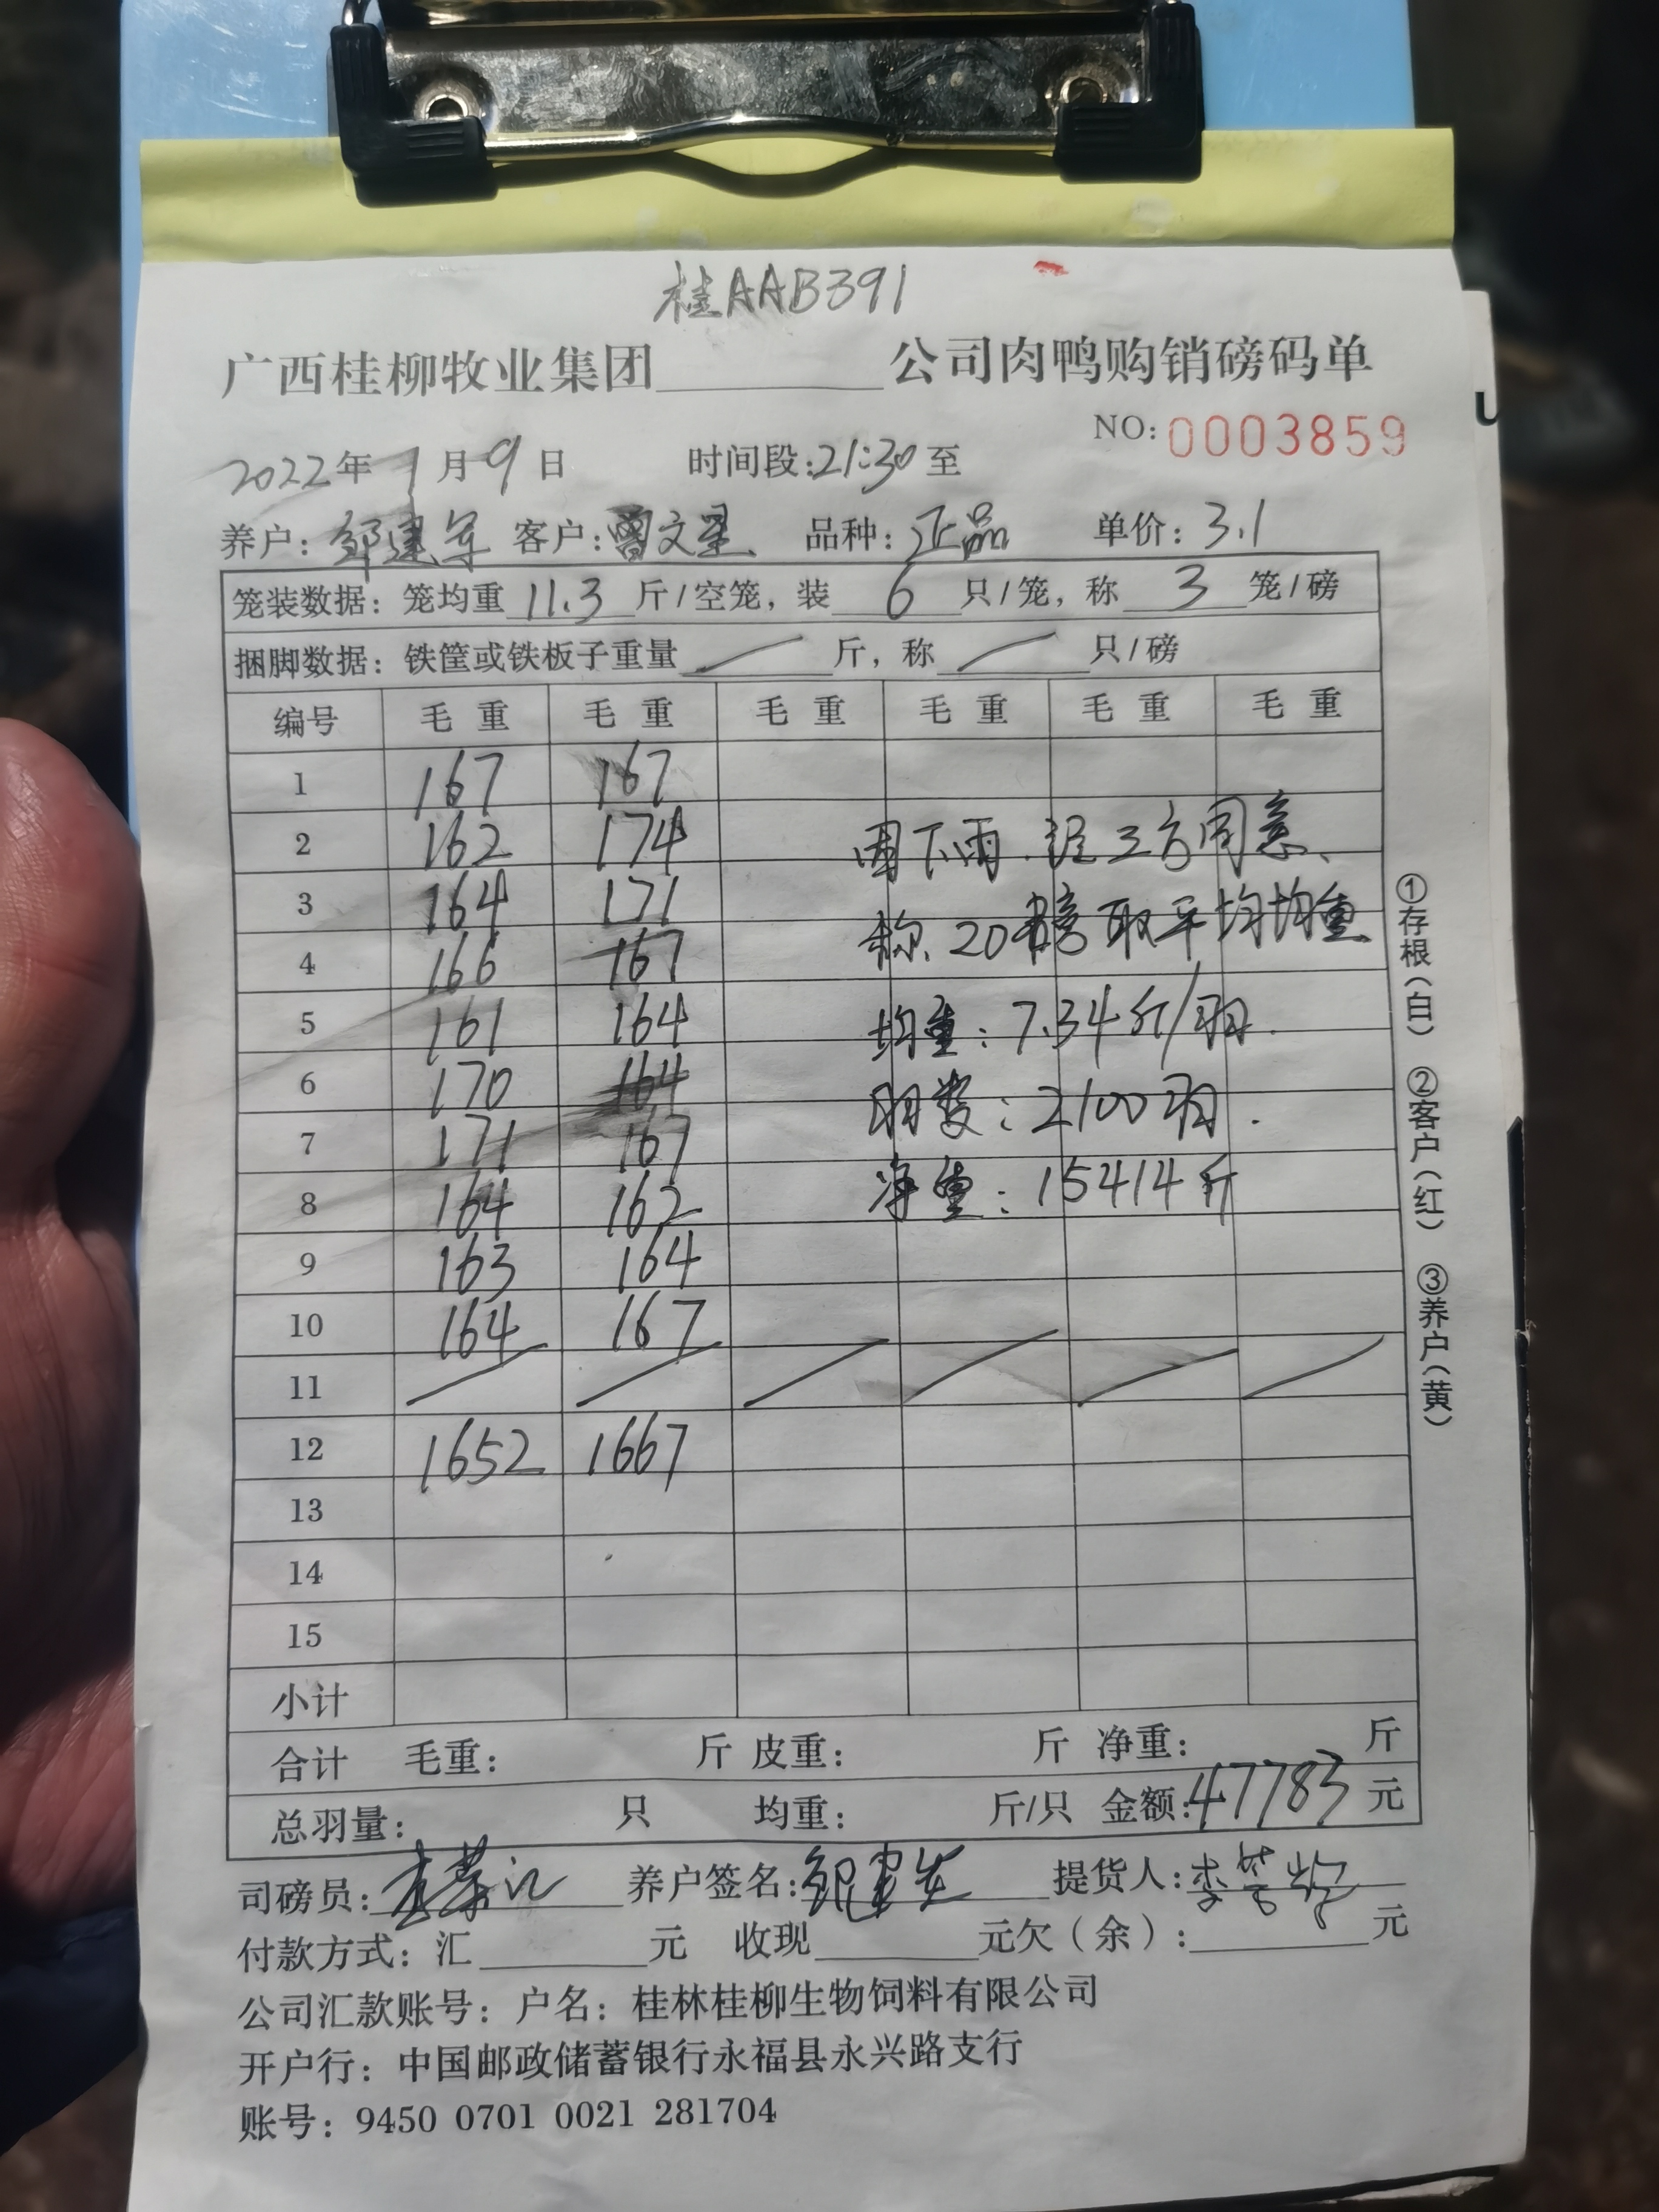 桂AAB391
广西桂柳牧业集团________公司肉鸭购销磅码单
NO: 0003859
2022年 1月 9日 时间段:21:30至
养户: 邹建军 客户: 曾文星 品种: 正品 单价: 3.1
笼装数据: 笼均重 11.3 斤/空笼, 装 6 只/笼, 称 3 笼/磅
捆脚数据: 铁筐或铁板子重量 / 斤, 称 / 只/磅
编号 毛重 毛重 毛重 毛重 毛重 毛重
1 167 167
2 162 174
因下雨.经三方同意、
3 164 171
称20磅取平均均重
4 166 167
5 161 164
均重: 7.34斤/羽.
6 170 164
羽数: 2100羽.
7 171 167
8 164 162
净重: 15414斤
9 163 164
10 164 167
11 / / / / / /
12 1652 1667
13
14
15
小计
合计 毛重: 斤 皮重: 斤 净重: 斤
总羽量: 只 均重: 斤/只 金额: 47783 元
司磅员: 养户签名: 提货人: 李
付款方式: 汇______元 收现______元欠(余):______元
公司汇款账号: 户名: 桂林桂柳生物饲料有限公司
开户行: 中国邮政储蓄银行永福县永兴路支行
账号: 9450 0701 0021 281704
①存根(白) ②客户(红) ③养户(黄)